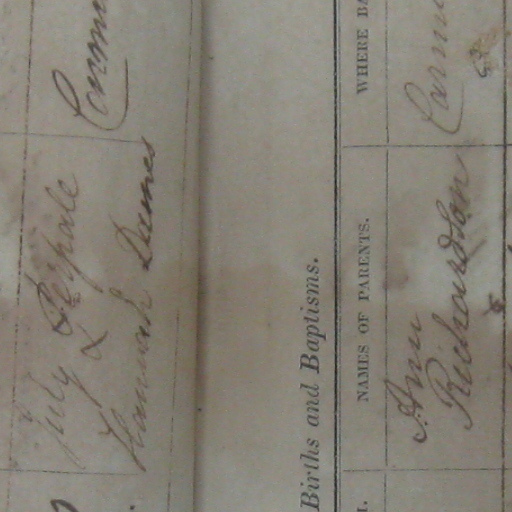 July Perpale
&
Hannah Dames
Births and Baptisms.
NAMES OF PARENTS.
WHERE BA
Ann
Richardson
&